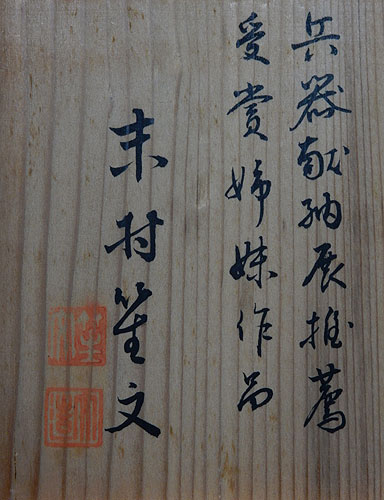 兵器献納展推薦
受賞姉妹作品
末村笙文